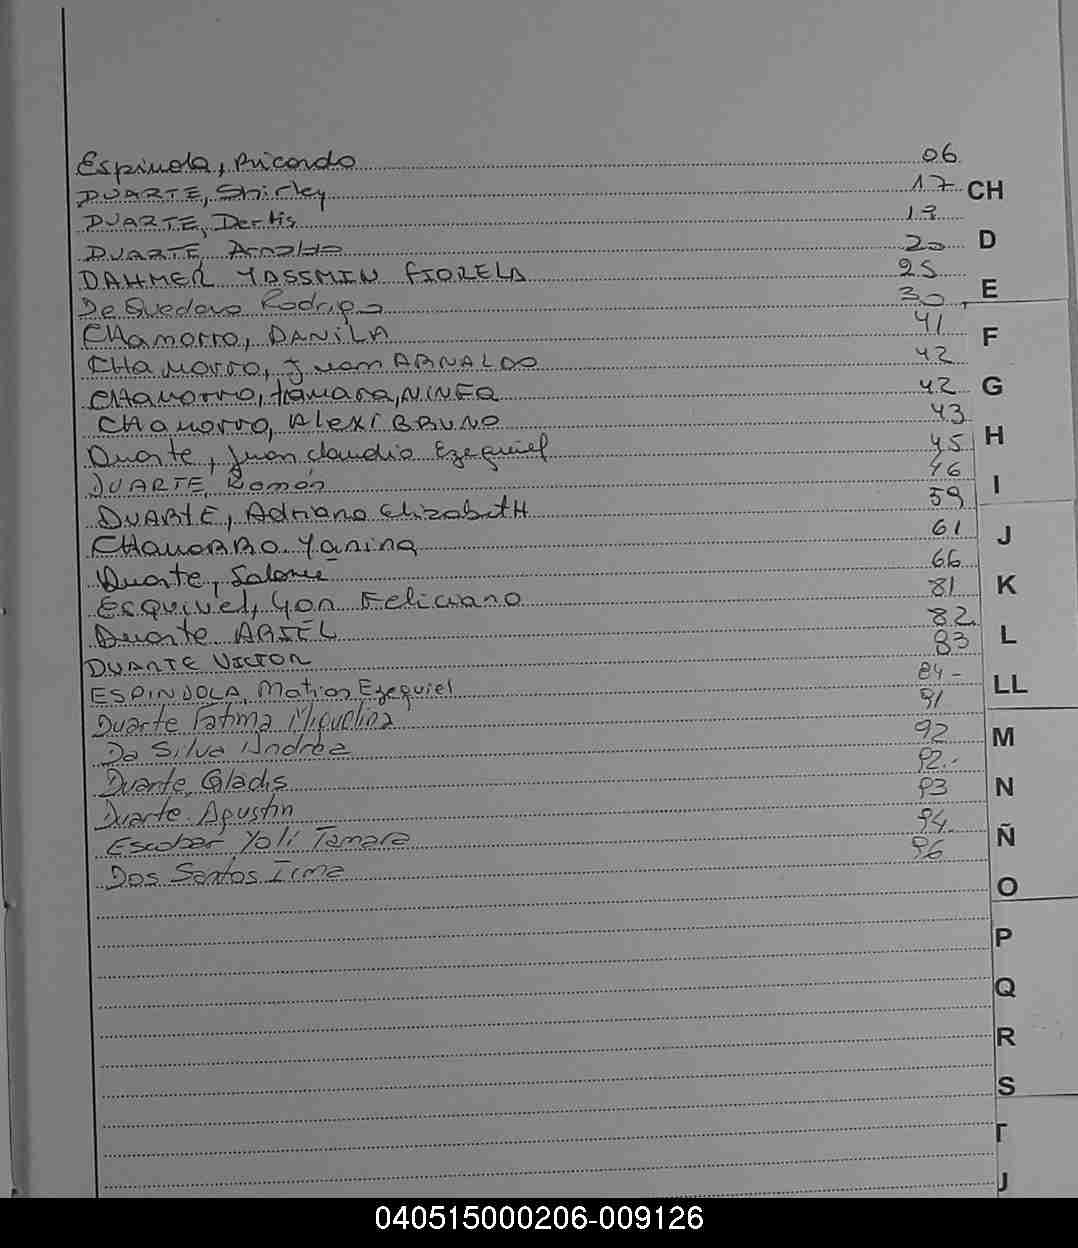 Espinola, Ricardo 06
DUARTE, Shirley 17 CH
DUARTE, Derlis 19
DUARTE, Arnaldo 20 D
DAHMER YASSMIN FIORELA 25
De Quedevo Rodrigo 30 E
CHamorro, DANiLA 41
CHamorro, Juan ARNALDO 42 F
CHamorro, tamara, NINFA 42 G
CHamorro, Alexi BRUNO 43
Duarte, Juan claudio Ezequiel 45 H
DUARTE, Román 46
DUARtE, Adriana ElizabetH 59 I
CHamoRRo Yanina 61 J
Duarte, Salomé 66
Esquivel, Yon Feliciano 81 K
Duarte ARIEL 82
DUARTE VICTOR 83 L
ESPINDOLA, Matias Ezequiel 84- LL
Duarte Fatima Miguelina 91
Da Silva Andrea 92 M
Duarte, Gladis 92.-
Duarte. Agustin 93 N
Escobar Yoli Tamara 94. Ñ
Dos Santos Irma 96
O
P
Q
R
S
T
J
040515000206-009126